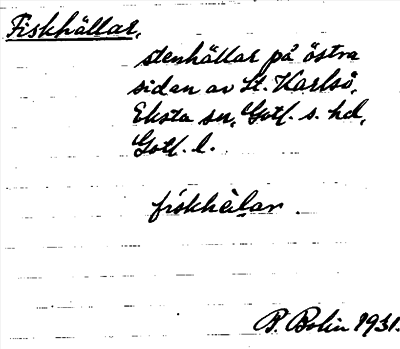 Fiskhällar,
stenhällar på östra
sidan av St. Karlsö,
Eksta sn, Gotl. s. hd,
Gotl. l.
fiskhälar.
B. Bolin 1931.